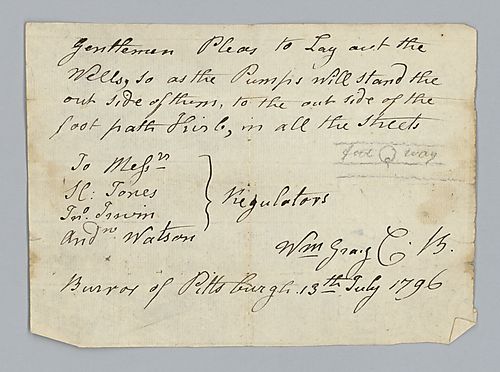 Gentlemen Pleas to Lay out the
Wells, so as the Pumps will stand the
out side of them, to the out side of the
foot path Kirb, in all the streets
foot way
To Messrs
H. Jones
Jno. Irwin
Andw. Watson
Regulators
Wm Graig C. B.
Burrox of Pittsburgh 13th July 1796